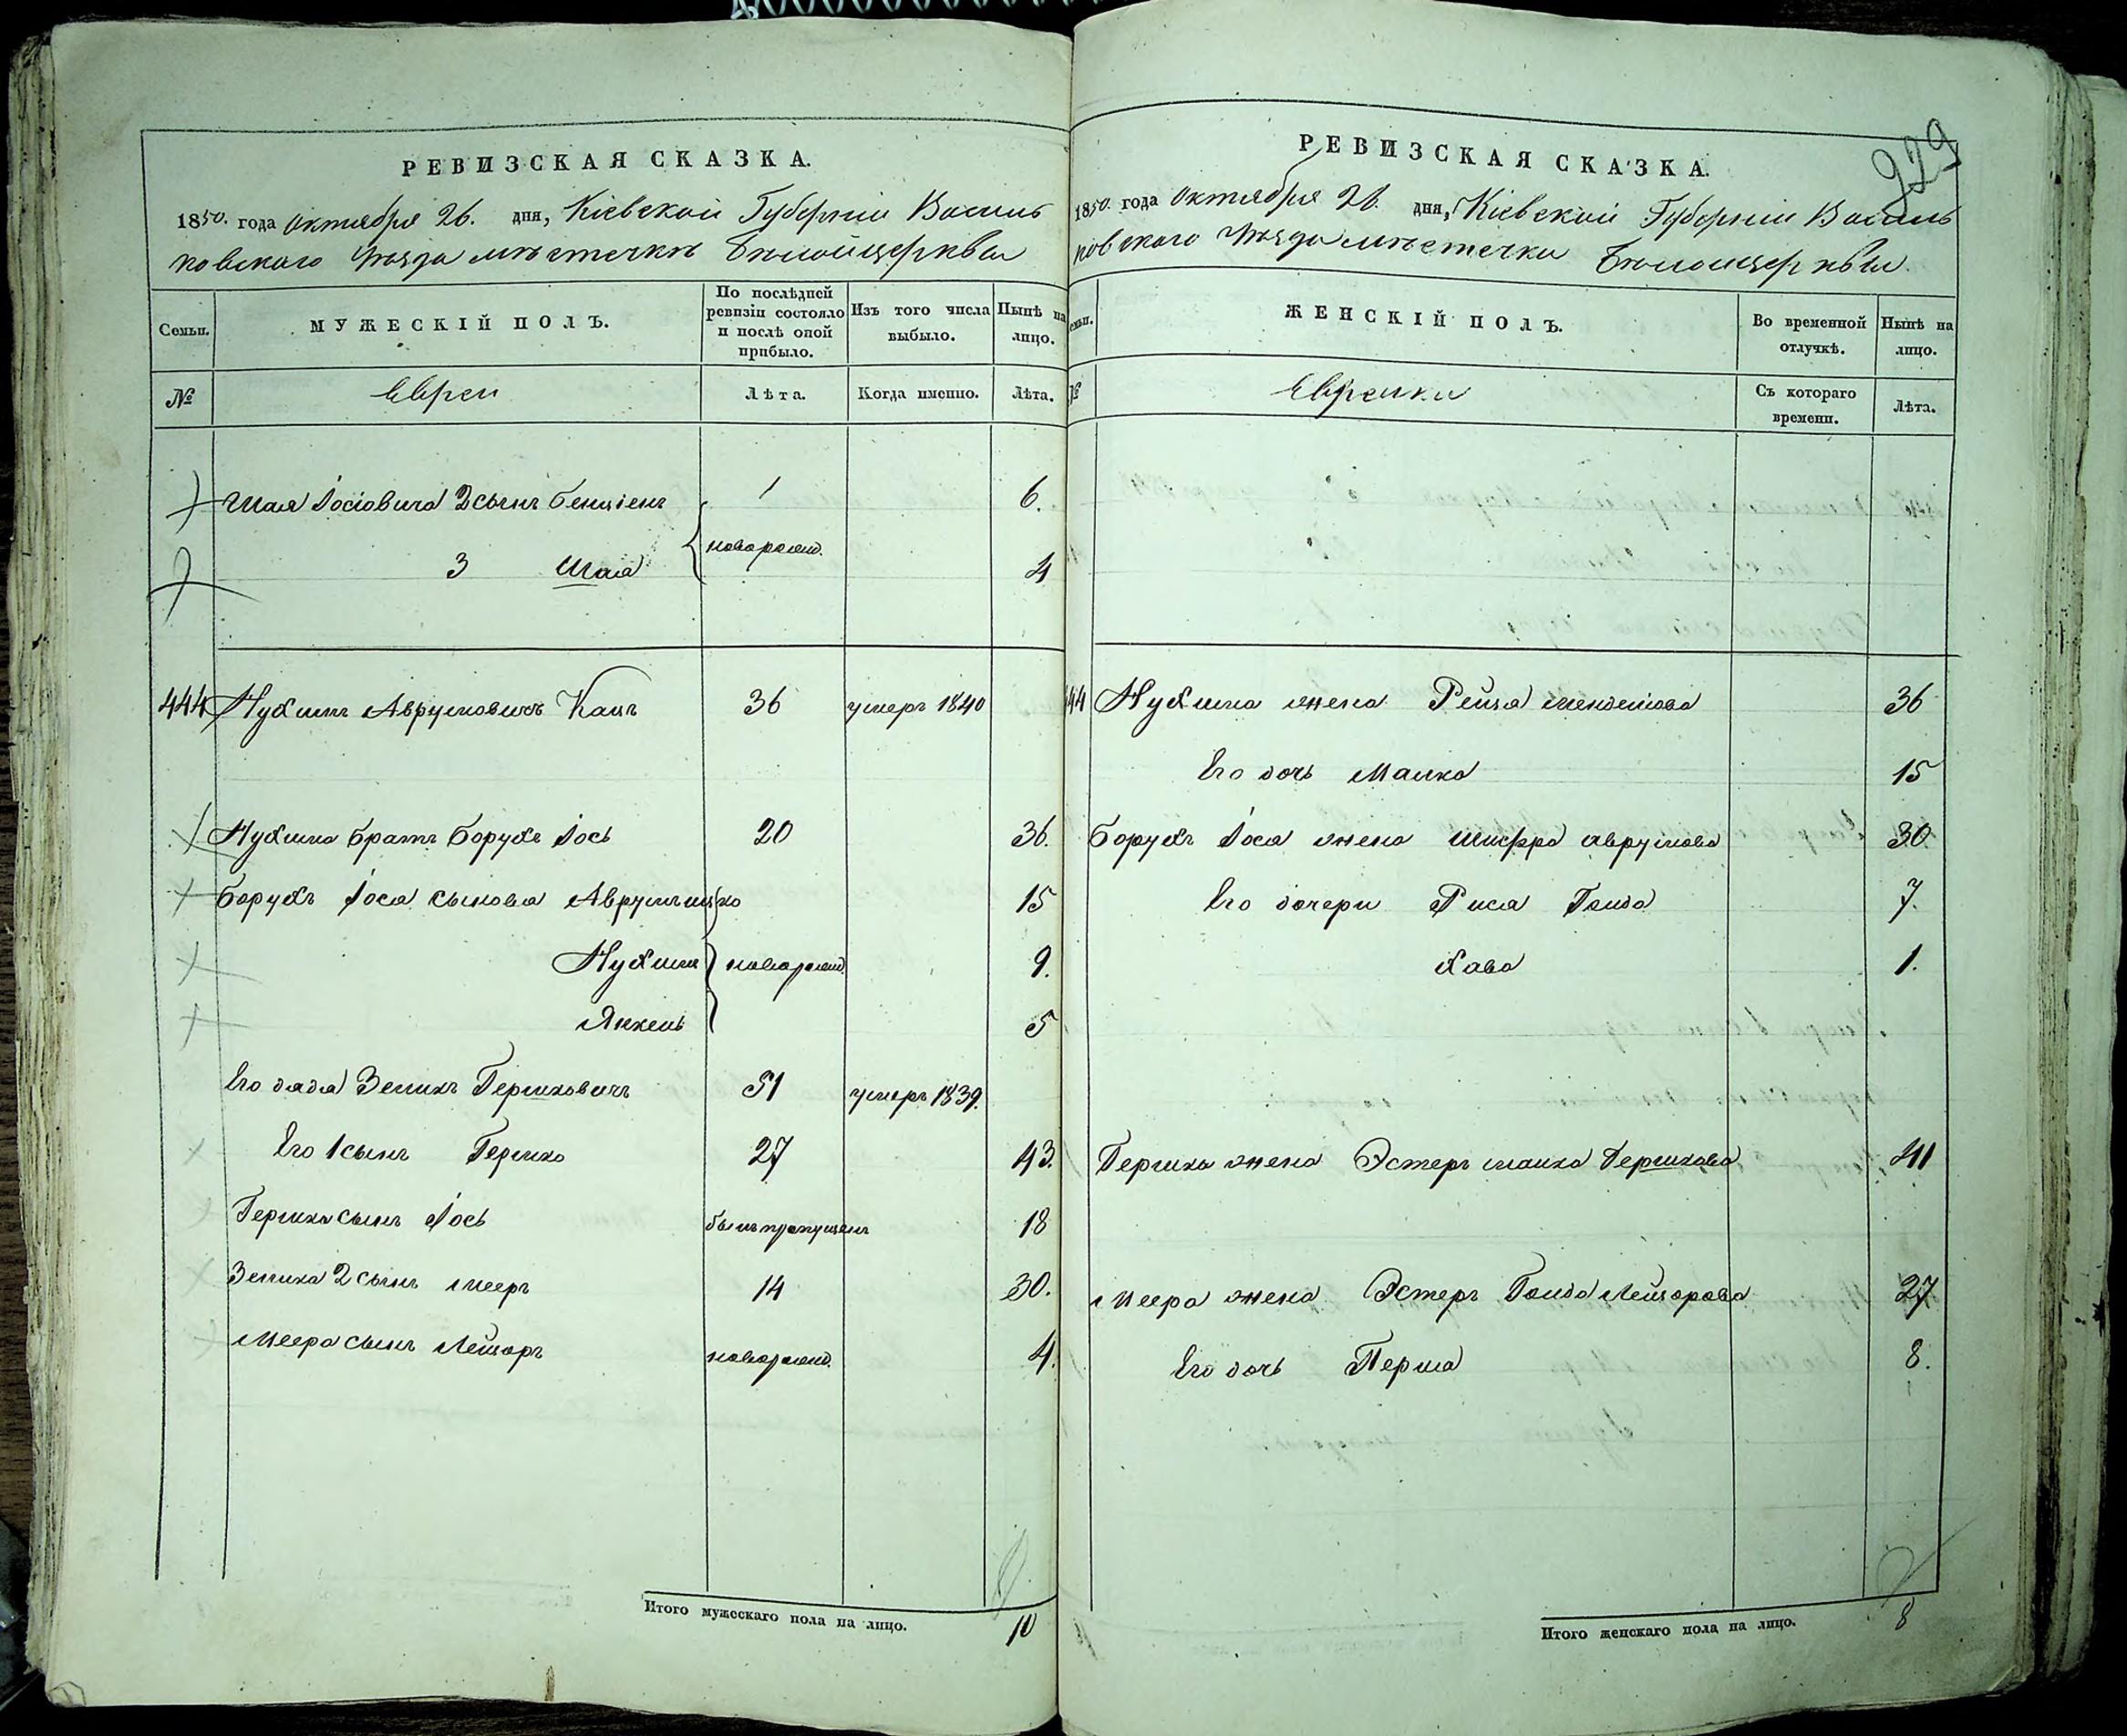 РЕВИЗСКАЯ СКАЗКА.
1850. года Октября 26. дня, Кіевской Губерніи Василь
ковского Уѣзда мѣстечкѣ Бѣлойцеркви
Семьи.
МУЖЕСКІЙ ПОЛЪ.
По послѣдней ревизіи состояло и послѣ оной прибыло.
Изъ того числа выбыло.
Нынѣ на лицо.
№
Евреи
Лѣта.
Когда именно.
Лѣта.
Шая Іосіовича 2 сынъ Бенціенъ 1 6.
3 Шая новорожд. 4
444 Нухимъ Аврумовичъ Кацъ 36 умеръ 1840
Нухима братъ Борухъ Іось 20 36.
Борухъ Іося сыновья Аврумъ ицко 15
Нухим новорожд. 9.
Янкель 5
Его дядя Зелихъ Гершковичъ 51 умеръ 1839.
Его 1 сынъ Гершко 27 43.
Гершка сынъ Іось былъ пропущенъ 18
Зелиха 2 сынъ Мееръ 14 30.
Меера сынъ Лейзоръ новорожд. 4.
Итого мужескаго пола на лицо. 10
929
РЕВИЗСКАЯ СКАЗКА.
1850. года Октября 26. дня, Кіевской Губерніи Василь
ковского Уѣзда мѣстечки Бѣлоицеркви.
Семьи.
ЖЕНСКІЙ ПОЛЪ.
Во временной отлучкѣ.
Нынѣ на лицо.
№
Еврейки
Съ котораго времени.
Лѣта.
444 Нухима жена Рейзя Менделіова 36
Его дочь Малка 15
Борухъ Іося жена Шифра Аврумова 30.
Его дочери Рися Голда 7.
Хава 1.
Гершка жена Эстеръ малка Гершкова 41
Меера жена Эстеръ Голда Лейзорова 27
Его дочь Перля 8.
Итого женскаго пола на лицо. 8